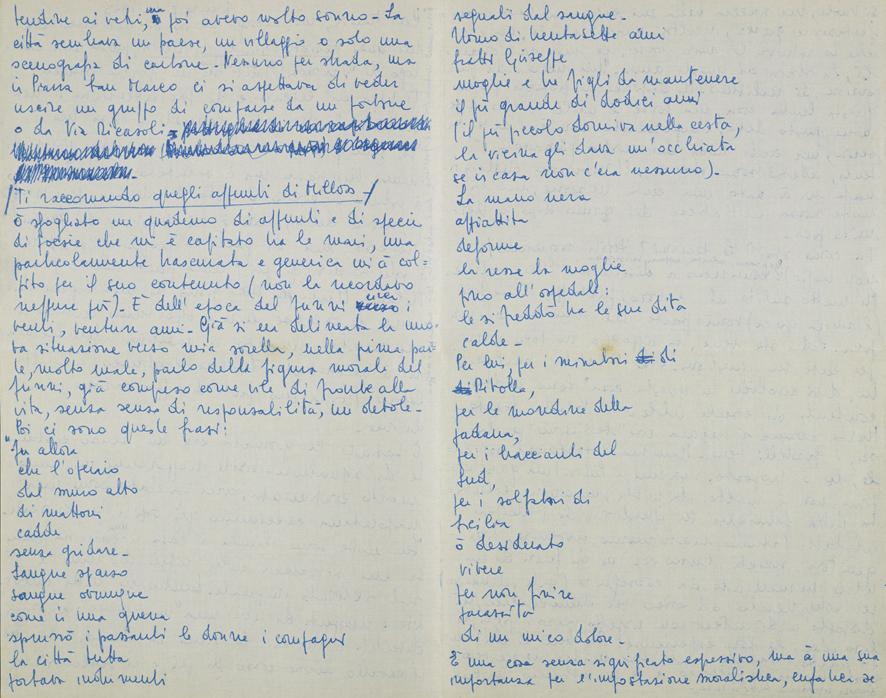 tendine ai vetri, ma poi avevo molto sonno - La
città sembrava un paese, un villaggio o solo una
scenografia di cartone - Nessuno per strada, ma
in Piazza San Marco ci si aspettava di veder
uscire un gruppo di comparse da un portone
o da Via Ricasoli -
(Ti raccomando quegli appunti di Milloss -)
ò sfogliato un quaderno di appunti e di specie
di poesie che mi è capitato tra le mani, una
particolarmente trascurata e generica mi à col=
pito per il suo contenuto (non la ricordavo
neppure più). È dell'epoca del circa i
venti, ventun anni - Già si era delineata la nuo=
va situazione verso mia sorella, nella prima par=
te, molto male, parlo della figura morale del
già compreso come vile di fronte alla
vita, senza senso di responsabilità, un debole -
Poi ci sono queste frasi:
"Fu allora
che l'operaio
dal muro alto
di mattoni
cadde
senza gridare -
Sangue sparso
sangue ovunque
come in una guerra
spruzzò i passanti le donne i compagni
la città tutta
portava indumenti
segnati dal sangue -
Uomo di trentasette anni
fratti Giuseppe
moglie e tre figli da mantenere
il più grande di dodici anni
(il più piccolo dormiva nella cesta,
la vicina gli dava un'occhiata
se in casa non c'era nessuno).
La mano nera
appiattita
deforme
la resse la moglie
fino all'ospedale:
le si freddò tra le sue dita
calde -
Per lui, per i minatori di
Ribolla,
per le mondine della
padana,
per i braccianti del
Sud,
per i solfatari di
Sicilia
ò desiderato
vivere
per non finire
parassita
di un mico dolore -
È una cosa senza significato espressivo, ma à una sua
importanza per l'impostazione moralistica, enfatica se